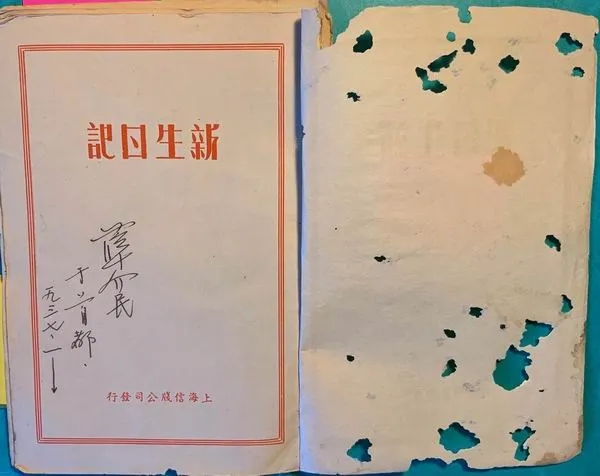 新生日記
薛介民
于首都.
九三七、一
上海信牋公司發行